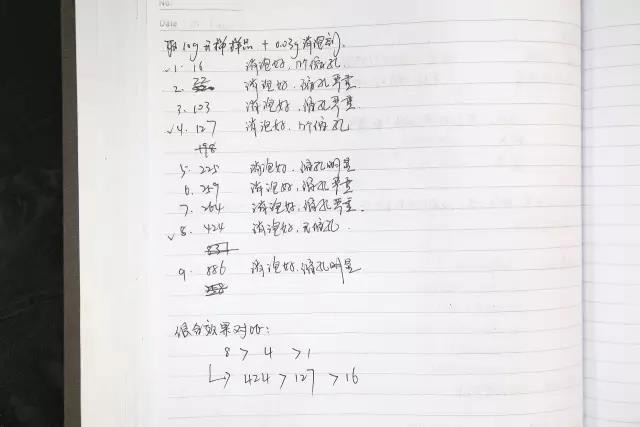 No.
Date
取10g无稀样品 + 0.03g消泡剂.
✓1. 16 消泡好, 1个缩孔
2. 22 消泡好, 缩孔严重
3. 103 消泡好, 缩孔严重
✓4. 127 消泡好, 11个缩孔
198
5. 225 消泡好, 缩孔明显
6. 259 消泡好, 缩孔严重
7. 264 消泡好, 缩孔严重.
✓8. 424 消泡好, 无缩孔.
837
9. 886 消泡好, 缩孔明显
258
综合效果对比:
8 > 4 > 1
↳ 424 > 127 > 16